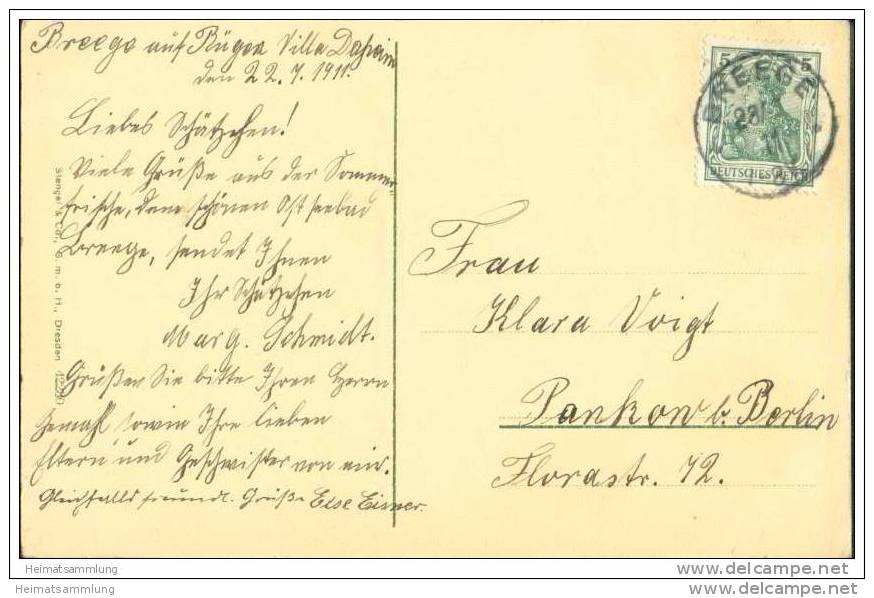 Breege auf Rügen Villa Daheim
den 22. 7. 1911.
Liebes Schätzchen!
Viele Grüße aus der Sommer
frische, dem schönen Ostseebad
Breege, sendet Ihnen
Ihr Schätzchen
Marg. Schmidt.
Grüßen Sie bitte Ihren Herrn
Gemahl, sowie Ihre lieben
Eltern und Geschwister von mir.
Gleichfalls freundl. Grüße Else Eisner.
Stengel & Co., G. m. b. H., Dresden
5 5
DEUTSCHES REICH
BREEGE
Frau
Klara Voigt
Pankow b. Berlin
Florastr. 42.
Heimatsammlung
Heimatsammlung
delcampe.net
delcampe.net